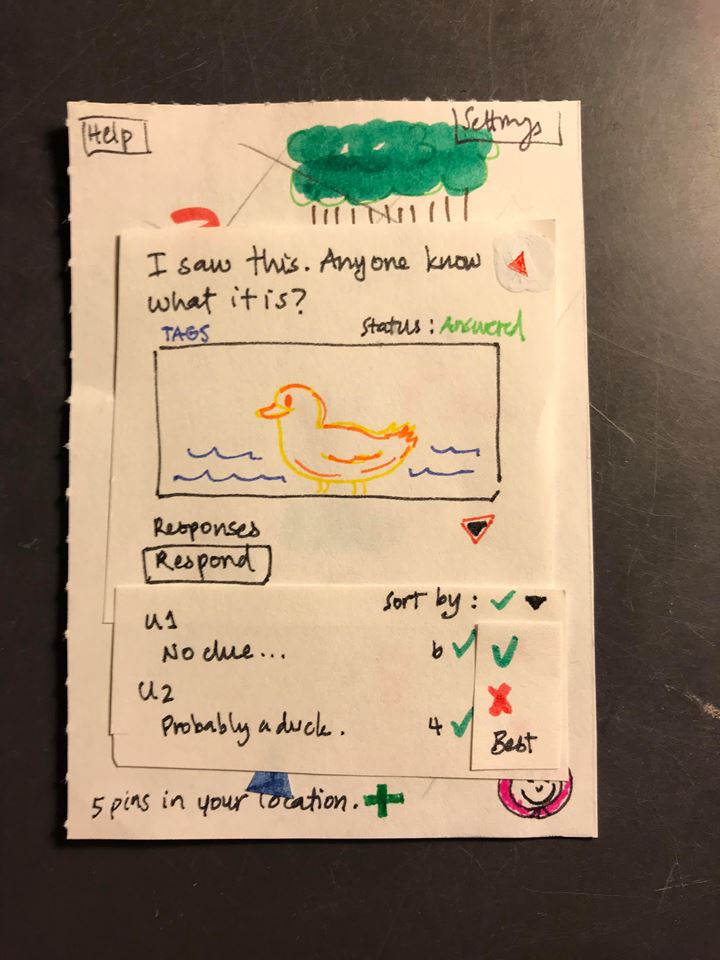 Help
Settings
I saw this. Anyone know
what it is?
TAGS
Status: Answered
Responses
Respond
Sort by:
U1
No clue...
6
U2
Probably a duck.
4
Best
5 pins in your location.